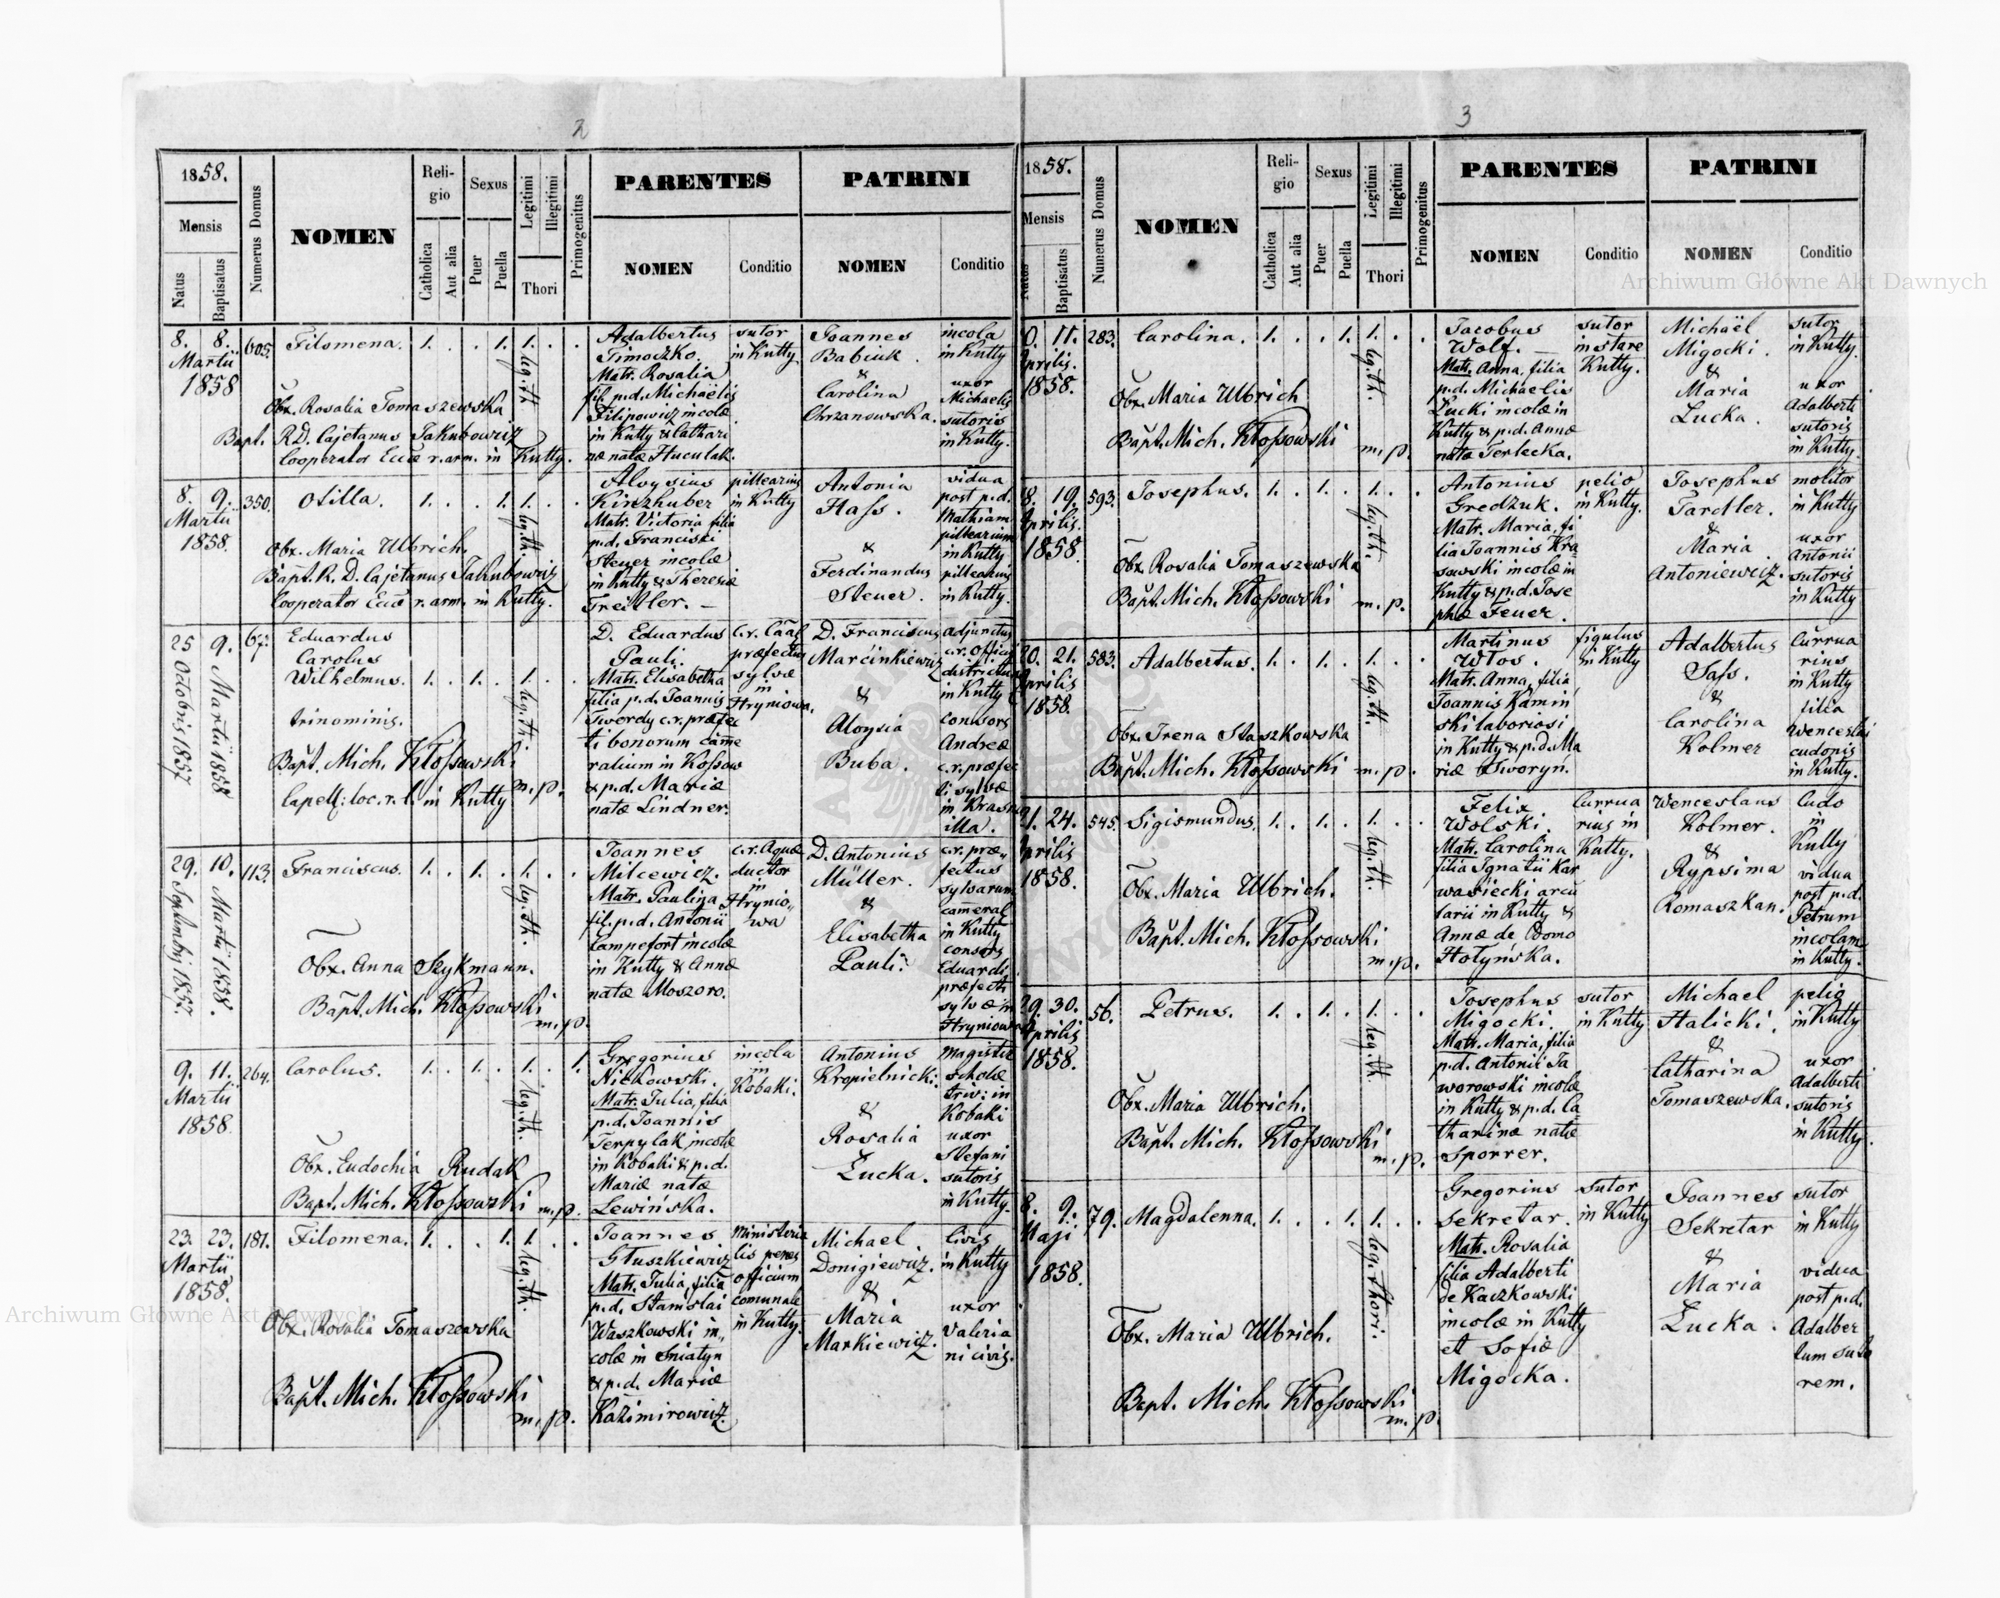 2
1858.
Mensis
Natus
Baptisatus
Numerus Domus
NOMEN
Religio
Catholica
Aut alia
Sexus
Puer
Puella
Legitimi
Illegitimi
Thori
Primogenitus
PARENTES
NOMEN
Conditio
PATRINI
NOMEN
Conditio
8. 8. 605. Filomena. 1. . . 1. 1. . .
Martii
1858
leg. th.
Obx. Rosalia Tomaszewska
Bapt. R.D. Cajetanus Jakubowicz
Cooperator Eccæ r. arm. in Kutty.
Adalbertus
Timoczko.
Matr. Rosalia
fil. p.d. Michaëlis
Filipowicz incolæ
in Kutty & Cathari
næ natæ Huculak.
sutor
in Kutty
Joannes
Babiuk.
&
Carolina
Chrzanowska.
incola
in Kutty
uxor
Michaelis
sutoris
in Kutty.
8. 9. 350. Otilla. 1. . . 1. 1. . .
Martii
1858.
leg. th.
Obx. Maria Ulbrich.
Bapt. R. D. Cajetanus Jakubowicz
Cooperator Eccæ r. arm. in Kutty.
Aloysius
Kinzhuber
Matr. Victoria filia
p.d. Francisci
Steuer incolæ
in Kutty & Theresiæ
Treitler. —
pillearius
in Kutty
Antonia
Hass.
&
Ferdinandus
Steuer.
vidua
post p.d.
Mathiam
pillearium
in Kutty
pillearius
in Kutty.
25 9. 67. Eduardus
Octobris 1857
Martii 1858
Carolus
Wilhelmus. 1. . 1. . 1. . .
trinominis.
leg. th.
Bapt. Mich. Kłossowski
Capell: loc. r. l. in Kutty m.p.
D. Eduardus
Pauli.
Matr. Elisabetha
filia p.d. Joannis
Twerdy c.r. præfec
ti bonorum came
ralium in Kossow
& p.d. Mariæ
natæ Lindner.
c.r. Caal
præfectus
sylvæ
in
Hryniowa.
D. Franciscus
Marcinkiewicz
&
Aloysia
Buba.
adjunctus
c.r. Officii
districtual
in Kutty
consors
Andreæ
c.r. præfec
ti sylvæ
in Krasno
illa.
29. 10. 113. Franciscus. 1. . 1. . 1. . .
Septembri 1857.
Martii 1858.
leg. th.
Obx. Anna Szykmann.
Bapt. Mich. Kłossowski
m.p.
Joannes
Milcewicz.
Matr. Paulina
fil. p.d. Antonii
Lampefort incolæ
in Kutty & Annæ
natæ Moszoro.
c.r. Aquæ
ductor
in
Hrynio,,
wa
D. Antonius
Müller.
&
Elisabetha
Pauli.
c.r. præ,,
fectus
sylvarum
cameral
in Kutty
consors
Eduardi
præfecti
sylvæ in
Hryniowa
9. 11. 264. Carolus. 1. . 1. . 1. . 1.
Martii
1858.
leg. th.
Obx. Eudochia Rudak
Bapt. Mich. Kłossowski m.p.
Gregorius
Nickowski.
Matr. Julia, filia
p.d. Joannis
Terpylak incolæ
in Kobaki & p.d.
Mariæ natæ
Lewińska.
incola
in
Kobaki.
Antonius
Kropielnicki.
&
Rosalia
Łucka.
magister
scholæ
triv: in
Kobaki
uxor
Stefani
sutoris
in Kutty.
23. 23. 181. Filomena. 1. . . 1. 1. . .
Martii
1858.
leg. th.
Obx. Rosalia Tomaszewska
Bapt. Mich. Kłossowski
m.p.
Joannes
Głuszkiewicz
Matr. Julia, filia
p.d. Stanislai
Waszkowski in,,
colæ in Sniatyn
& p.d. Mariæ
Kazimirowicz.
ministeria
lis penes
officium
comunale
in Kutty.
Michael
Donigiewicz.
&
Maria
Markiewicz.
civis
in Kutty
uxor
Valeria
ni civis.
3
1858.
Mensis
Natus
Baptisatus
Numerus Domus
NOMEN
Religio
Catholica
Aut alia
Sexus
Puer
Puella
Legitimi
Illegitimi
Thori
Primogenitus
PARENTES
NOMEN
Conditio
PATRINI
NOMEN
Conditio
0. 11. 283. Carolina. 1. . . 1. 1. . .
Aprilis.
1858.
leg. th.
Obx. Maria Ulbrich
Bapt. Mich. Kłossowski m.p.
Jacobus
Wolf. —
Matr. Anna, filia
p.d. Michaelis
Łucki incolæ in
Kutty & p.d. Annæ
natæ Terlecka.
sutor
in stare
Kutty.
Michaël
Migocki.
&
Maria
Łucka.
sutor
in Kutty.
uxor
Adalberti
sutoris
in Kutty.
8. 19. 593. Josephus. 1. . 1. . 1. . .
Aprilis.
1858
leg. th.
Obx. Rosalia Tomaszewska
Bapt. Mich. Kłossowski m.p.
Antonius
Gredżuk.
Matr. Maria, fi
lia Joannis Kra
sowski incolæ in
Kutty & p.d. Jose
phæ Feuer.
pelio
in Kutty.
Josephus
Tardler.
&
Maria
Antoniewicz.
molitor
in Kutty
uxor
Antonii
sutoris
in Kutty
20. 21. 583. Adalbertus. 1. . 1. . 1. . .
Aprilis
1858.
leg. th.
Obx. Irena Staszkowska
Bapt. Mich. Kłossowski m.p.
Martinus
Wlos.
Matr. Anna, filia
Joannis Kamin
ski laboriosi
in Kutty & p.d. Ma
riæ Tworyń.
figulus
in Kutty
Adalbertus
Sass.
&
Carolina
Kolmer
Currua
rius
in Kutty
filia
Wenceslai
cudonis
in Kutty.
21. 24. 545. Sigismundus. 1. . 1. . 1. . .
Aprilis
1858.
leg. th.
Obx. Maria Ulbrich.
Bapt. Mich. Kłossowski
m.p.
Felix
Wolski.
Matr. Carolina
filia Ignatii Kar
wasiecki arcu
larii in Kutty &
Annæ de Domo
Hołyńska.
Currua
rius in
Kutty.
Wenceslaus
Kolmer.
&
Rypsima
Romaszkan.
Cudo
in
Kutty
vidua
post p.d.
Petrum
incolam
in Kutty.
29. 30. 56. Petrus. 1. . 1. . 1. . .
Aprilis
1858.
leg. th.
Obx. Maria Ulbrich.
Bapt. Mich. Kłossowski
m.p.
Josephus
Migocki.
Matr. Maria, filia
p.d. Antonii Ja
worowski incolæ
in Kutty & p.d. Ca
tharinæ natæ
Sporrer.
sutor
in Kutty
Michael
Halicki.
&
Catharina
Tomaszewska.
pelio
in Kutty
uxor
Adalberti
sutoris
in Kutty.
8. 9. 79. Magdalenna. 1. . . 1. 1. . .
Maji
1858.
leg. thori.
Obx. Maria Ulbrich.
Bapt. Mich. Kłossowski
m.p.
Gregorius
Sekretar.
Matr. Rosalia
filia Adalberti
de Kaczkowski
incolæ in Kutty
et Sofiæ
Migocka.
sutor
in Kutty
Joannes
Sekretar
&
Maria
Łucka.
sutor
in Kutty
vidua
post p.d.
Adalber
tum suto
rem.
Archiwum Główne Akt Dawnych
Archiwum Główne Akt Dawnych